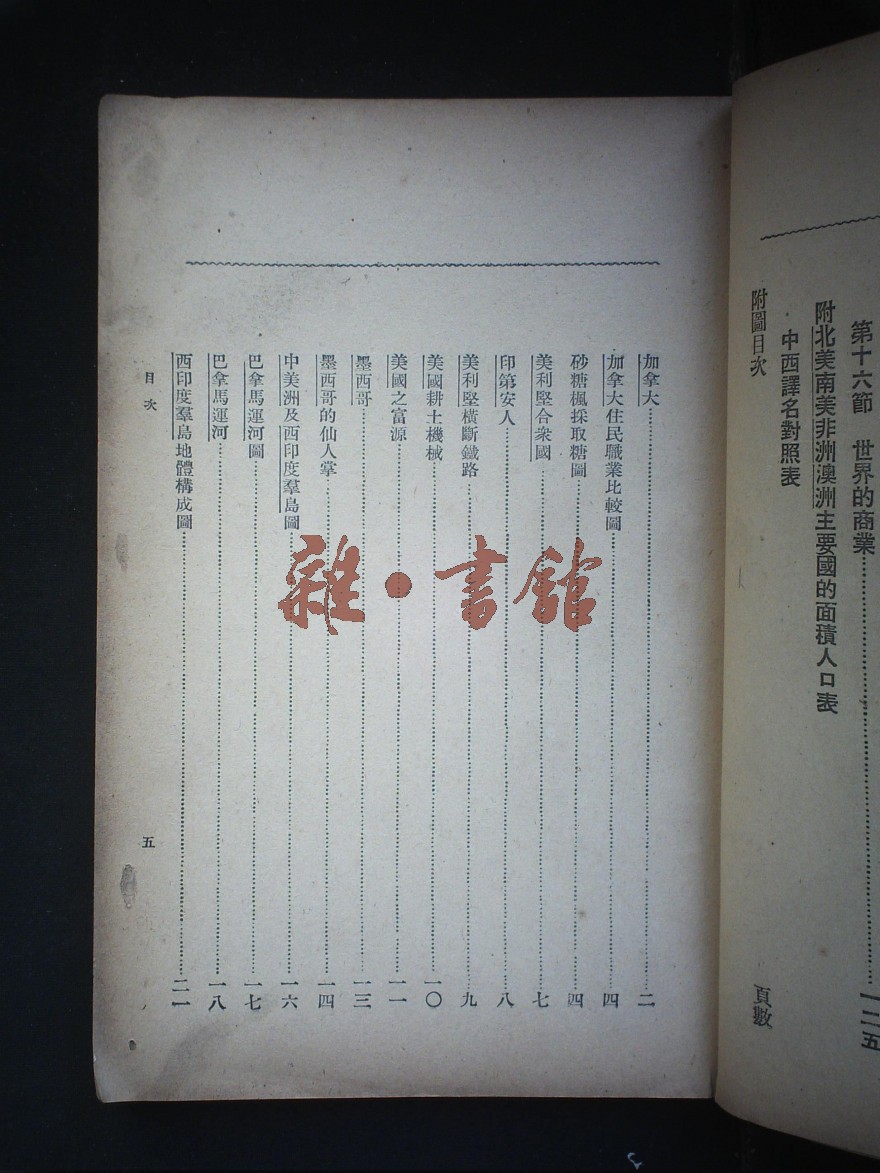 第十六節　世界的商業……一二五
附北美南美非洲澳洲主要國的面積人口表
中西譯名對照表
附圖目次　頁數
加拿大……二
加拿大住民職業比較圖……四
砂糖楓採取糖圖……四
美利堅合衆國……七
印第安人……八
美利堅橫斷鐵路……九
美國耕土機械……一〇
美國之富源……一一
墨西哥……一三
墨西哥的仙人掌……一四
中美洲及西印度羣島圖……一六
巴拿馬運河圖……一七
巴拿馬運河……一八
西印度羣島地體構成圖……二一
目次　五
雜·書館